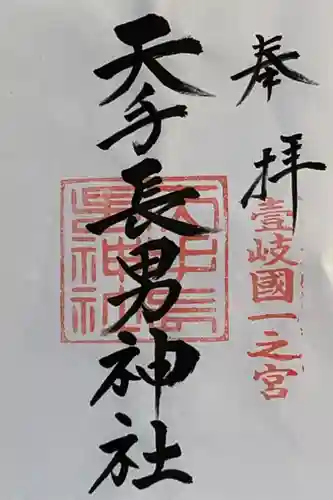 奉拝
壹岐國一之宮
天手長男神社